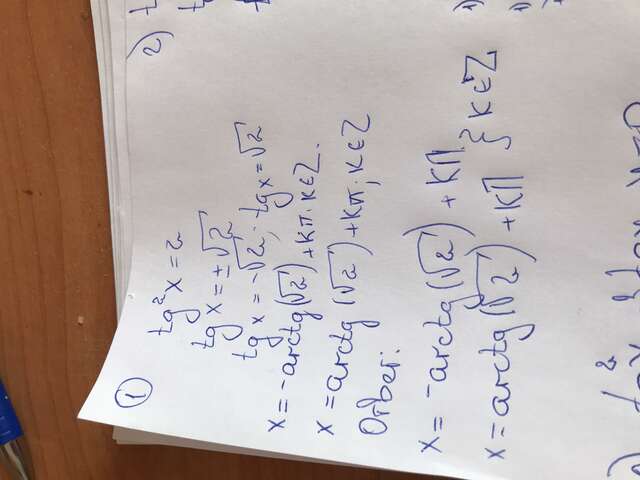 ①
tg²x=2
tg x=±√2
tg x=-√2; tg x=√2
x=-arctg(√2)+Kπ; K∈Z.
x=arctg(√2)+Kπ, K∈Z
Ответ:
x=-arctg(√2)+КП
x=arctg(√2)+КП } K∈Z
2)